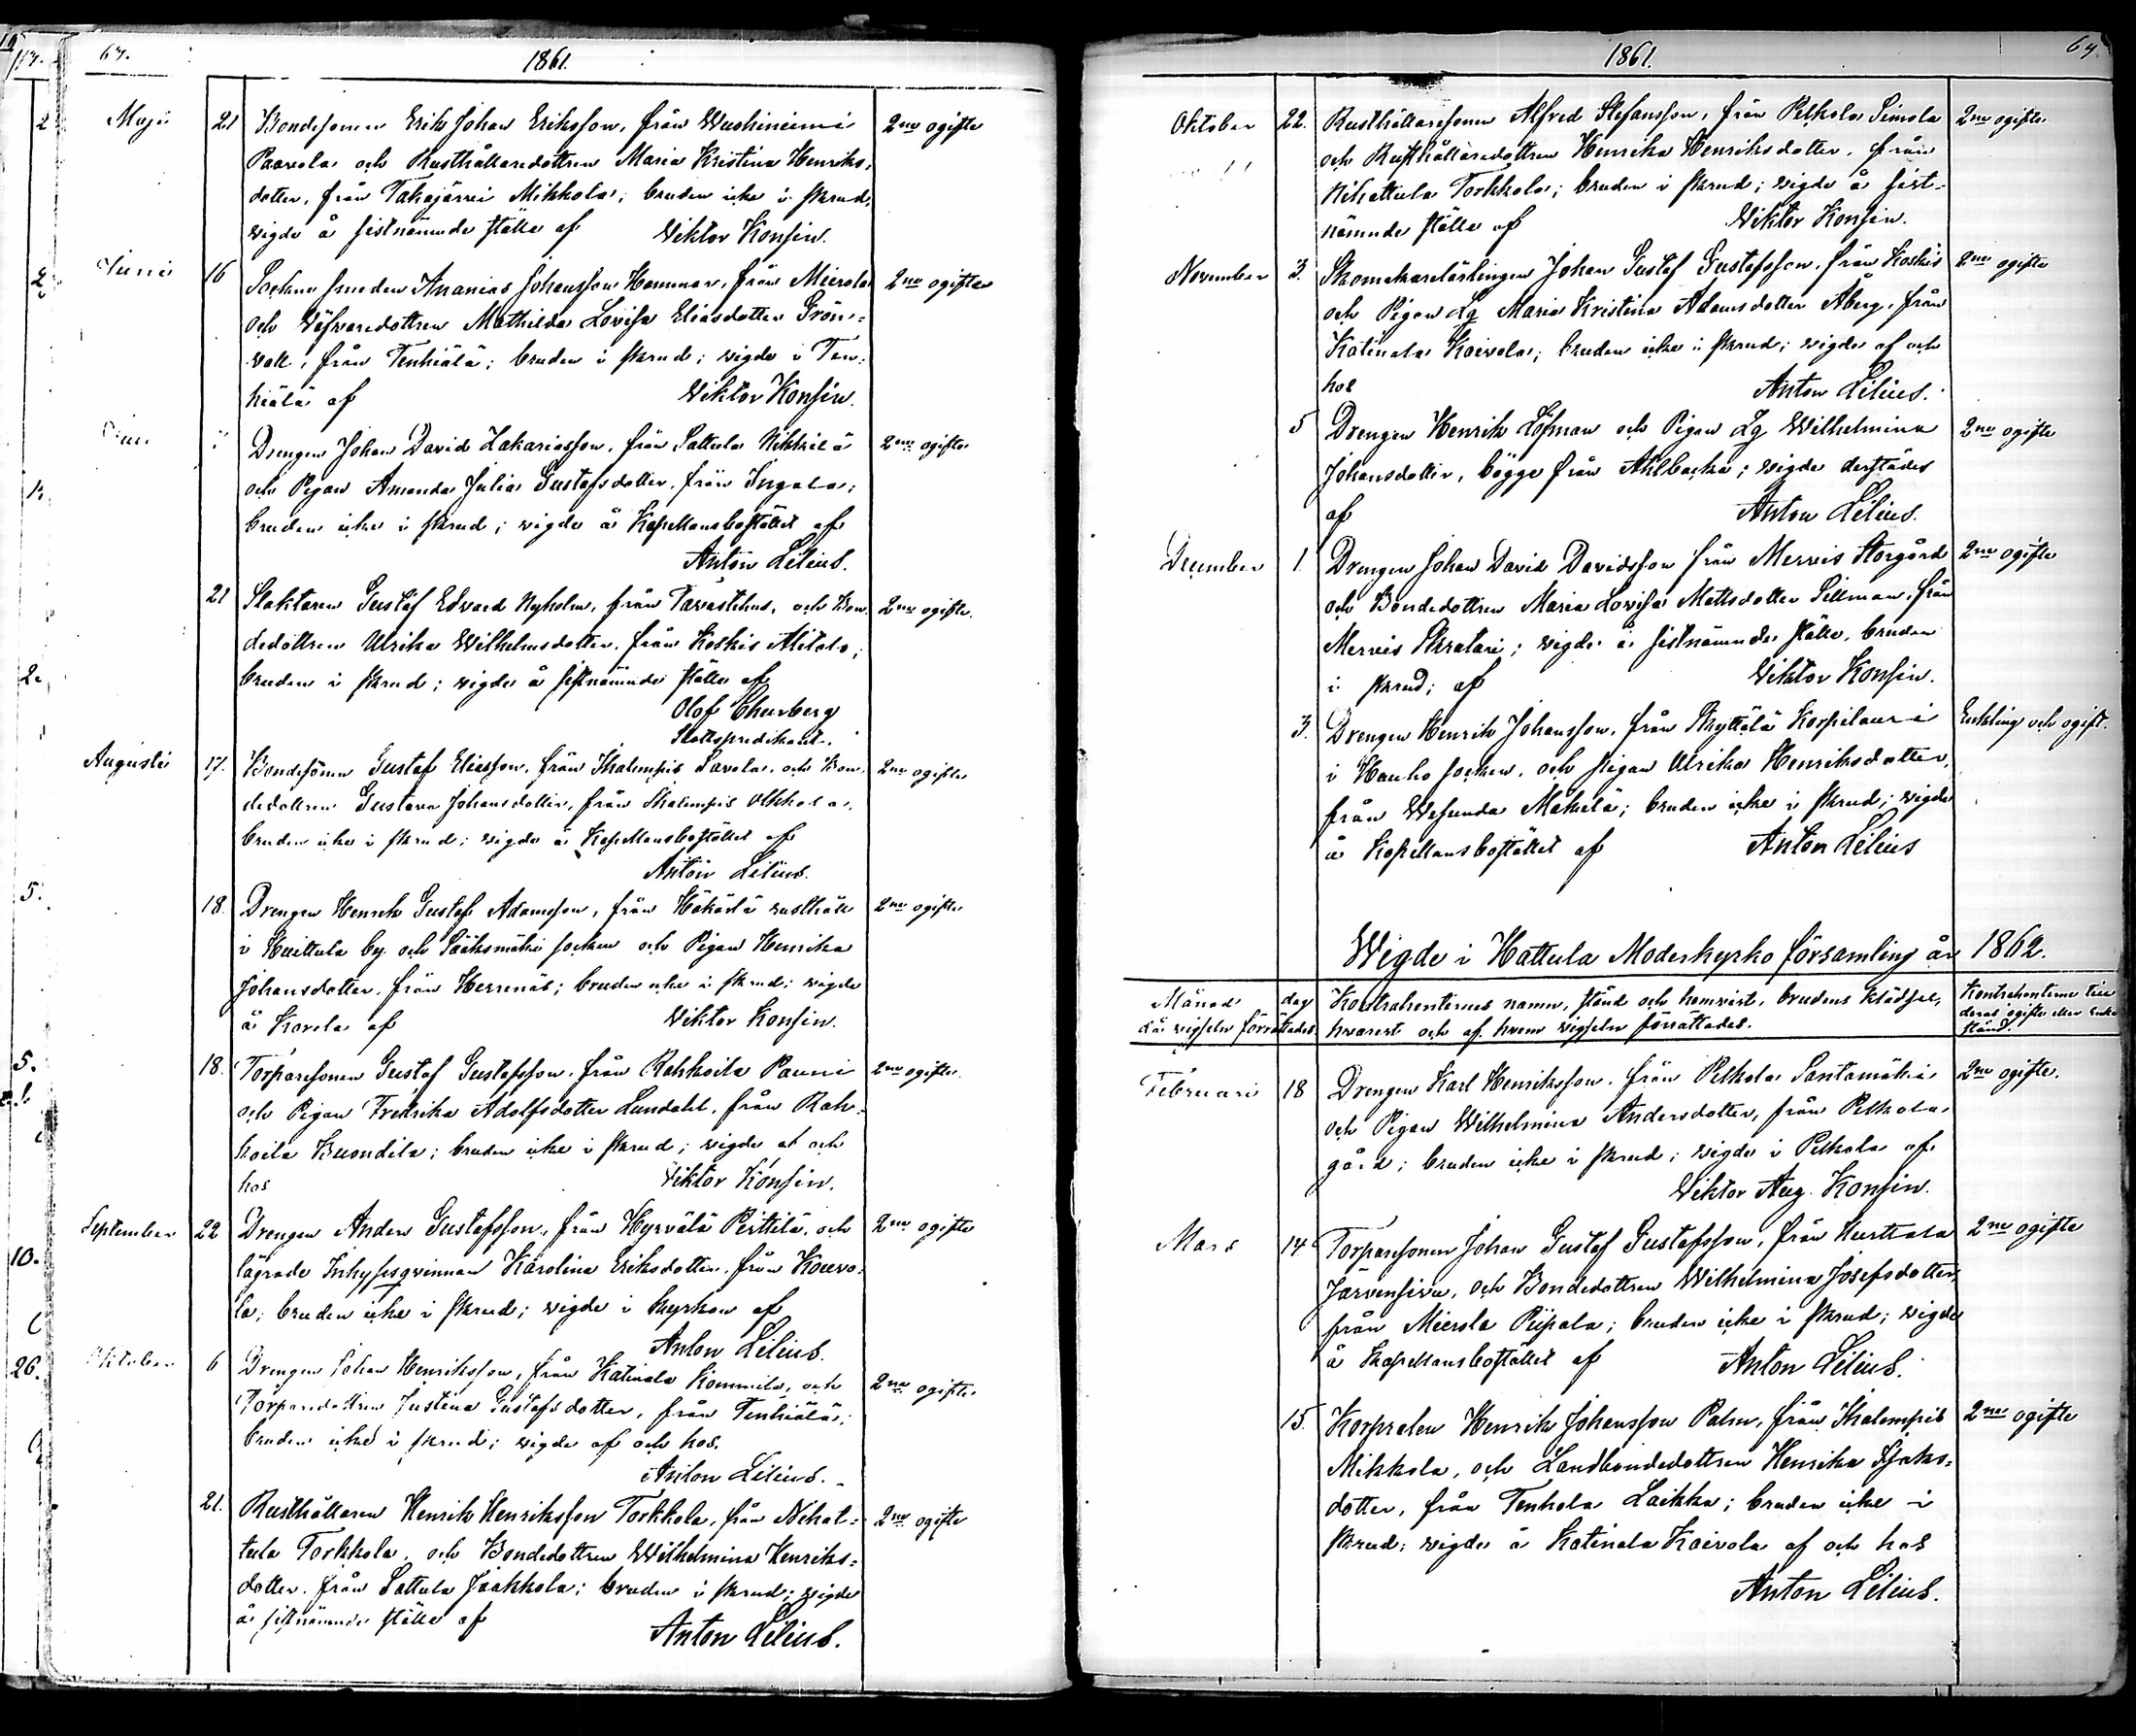 67.
1861.
Maji 21 Bondesonen Erik Johan Eriksson, från Wuohiniemi 2ne ogifte
Paavola och Rusthållaredottren Maria Kristina Henriks-
dotter, från Takajärvi Mikkola; bruden icke i skrud;
vigde å sistnämnde ställe af Viktor Konsin.
Juni 16 Sockne smeden Ananias Johansson Hammar, från Mierola 2ne ogifte
och Wäfvaredottren Mathilda Lovisa Eliasdotter Grön-
vall, från Tenhiälä; bruden i skrud; vigde i Ten-
hiälä af Viktor Konsin.
Drengen Johan David Zakariasson, från Sattula Nikkilä 2ne ogifte
och Pigan Amanda Julia Gustafsdotter, från Ingala;
bruden icke i skrud; vigde å Kapellansbostället af
Anton Lilius.
21 Slaktaren Gustaf Edvard Nyholm, från Tavastehus, och Bon- 2ne ogifte.
dedottren Ulrika Wilhelmsdotter, från Koskis Alitalo;
bruden i skrud; vigde å sistnämnde ställe af
Olof Churberg
Slottspredikant.
Augusti 17. Bondesonen Gustaf Eliasson, från Ihalempis Savola, och Bon- 2ne ogifte
dedottren Gustava Johansdotter, från Ihalempis Olkkola,
bruden icke i skrud; vigde å Kapellansbostället af
Anton Lilius.
18. Drengen Henrik Gustaf Adamsson, från Häkärlä rusthåll 2ne ogifte
i Huittula by och Sääksmäki socken och Pigan Henrika
Johansdotter, från Herrenäs; bruden icke i skrud; vigde
å Karela af Viktor Konsin.
18. Torparesonen Gustaf Gustafsson, från Rahkoila Pauni 2ne ogifte.
och Pigan Fredrika Adolfsdotter Lundahl, från Rah-
koila Buondila; bruden icke i skrud; vigde af och
hos Viktor Konsin.
September 22 Drengen Anders Gustafsson, från Hyrvälä Perttilä, och 2ne ogifte
lägrade Inhysesqvinnan Karolina Eriksdotter, från Kouvo-
la; bruden icke i skrud; vigde i kyrkan af
Anton Lilius.
Oktober 6 Drengen Johan Henriksson, från Katinala Kommila, och 2ne ogifte
Torparedottren Justina Gustafsdotter, från Tenhiälä;
bruden icke i skrud; vigde af och hos.
Anton Lilius.
21. Rusthållaren Henrik Henriksson Torkkola, från Nihat- 2ne ogifte
tula Torkkola, och Bondedottren Wilhelmina Henriks-
dotter, från Sattula Jaakkola; bruden i skrud; vigde
å sistnämnde ställe af
Anton Lilius.
1861.
64.
Oktober 22. Rusthållaresonen Alfred Stefansson, från Pelkola Simola 2ne ogifte
och Rusthållaredottren Henrika Henriksdotter, från
Nihattula Torkkola; bruden i skrud; vigde å sist-
nämnde ställe af Viktor Konsin.
November 3. Skomakarelärlingen Johan Gustaf Gustafsson, från Koskis 2ne ogifte
och Pigan Lg Maria Kristina Adamsdotter Åberg, från
Katinala Koivola; bruden icke i skrud; vigde af och
hos Anton Lilius.
5 Drengen Henrik Löfman och Pigan Lg Wilhelmina 2ne ogifte
Johansdotter, bägge från Ahlbacka; vigde derstädes
af Anton Lilius.
December 1. Drengen Johan David Davidsson från Mervis Storgård 2ne ogifte
och Bondedottren Maria Lovisa Mattsdotter Sillman, från
Mervis Skratari; vigde å sistnämnde ställe, bruden
i skrud; af Viktor Konsin.
3. Drengen Henrik Johansson, från Skyttälä Korpilauri Enkling och ogift.
i Hauho socken, och pigan Ulrika Henriksdotter,
från Wesunda Mäkelä; bruden icke i skrud; vigde
å Kapellansbostället af Anton Lilius
Wigde i Hattula Moderkyrko församling år 1862.
Månad dag Kontrahenternes namn, stånd och hemvist, brudens klädsel, Kontrahenterne till
då vigseln förrättades. hvarest och af hvem vigseln förrättades. deras ogifte eller Enke
stånd.
Februari 18 Drengen Karl Henriksson, från Pelkola Santamäki 2ne ogifte.
och Pigan Wilhelmina Andersdotter, från Pelkola
gård; bruden icke i skrud; vigde i Pelkola af
Viktor Aug. Konsin.
Mars 14 Torparesonen Johan Gustaf Gustafsson, från Hurttala 2ne ogifte
Järvensivu, och Bondedottren Wilhelmina Josefsdotter,
från Mierola Piipala; bruden icke i skrud; vigde
å Kapellansbostället af Anton Lilius.
15. Korpralen Henrik Johansson Palm, från Ihalempis 2ne ogifte
Mikkola, och Landbondedottren Henrika Isaks-
dotter, från Tenhola Laikka; bruden icke i
skrud; vigde å Katinala Koivola af och hos
Anton Lilius.